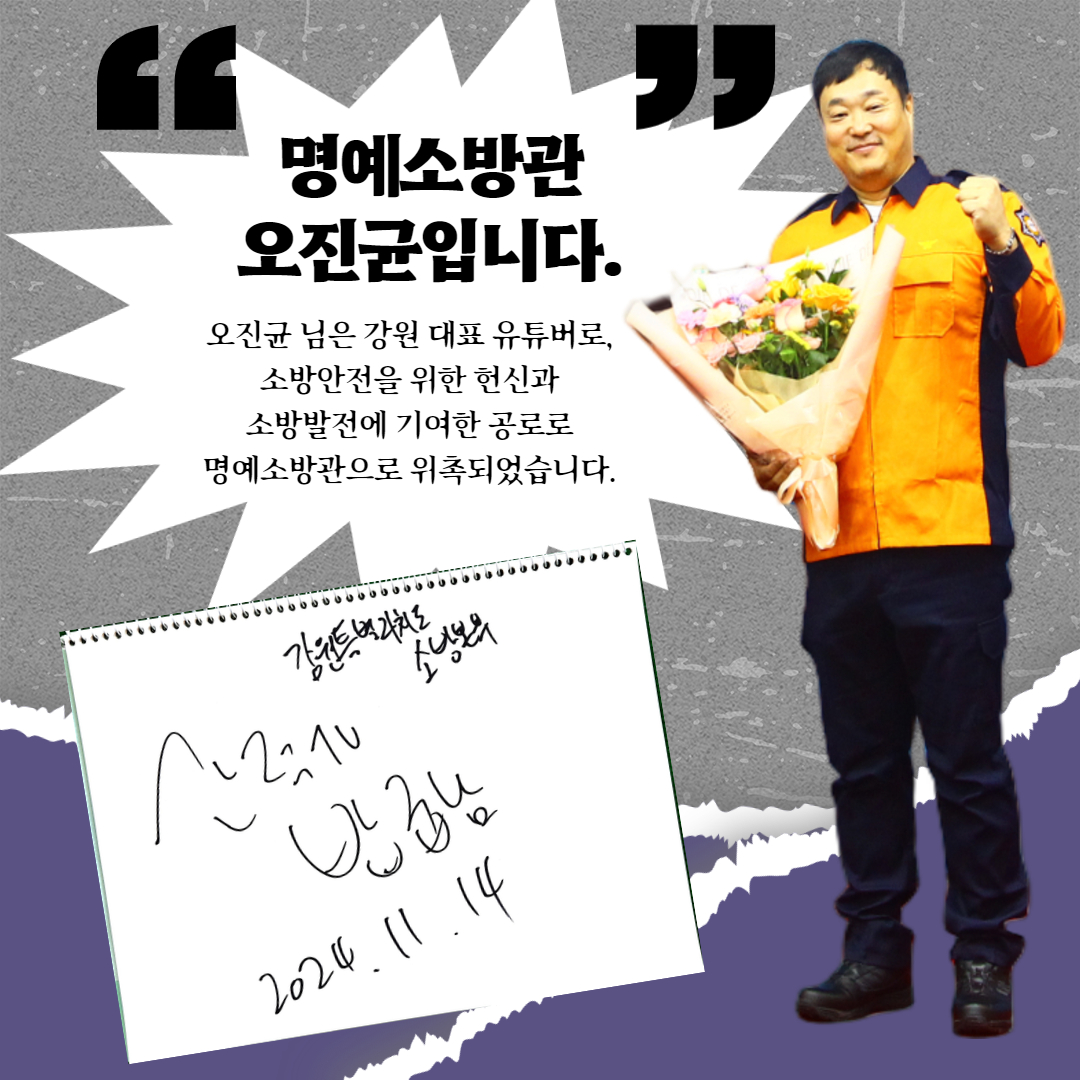 “ ”
명예소방관
오진균입니다.
오진균 님은 강원 대표 유튜버로,
소방안전을 위한 헌신과
소방발전에 기여한 공로로
명예소방관으로 위촉되었습니다.
강원특별자치도
소방본부
산적TV
밥굽남
2024. 11. 14